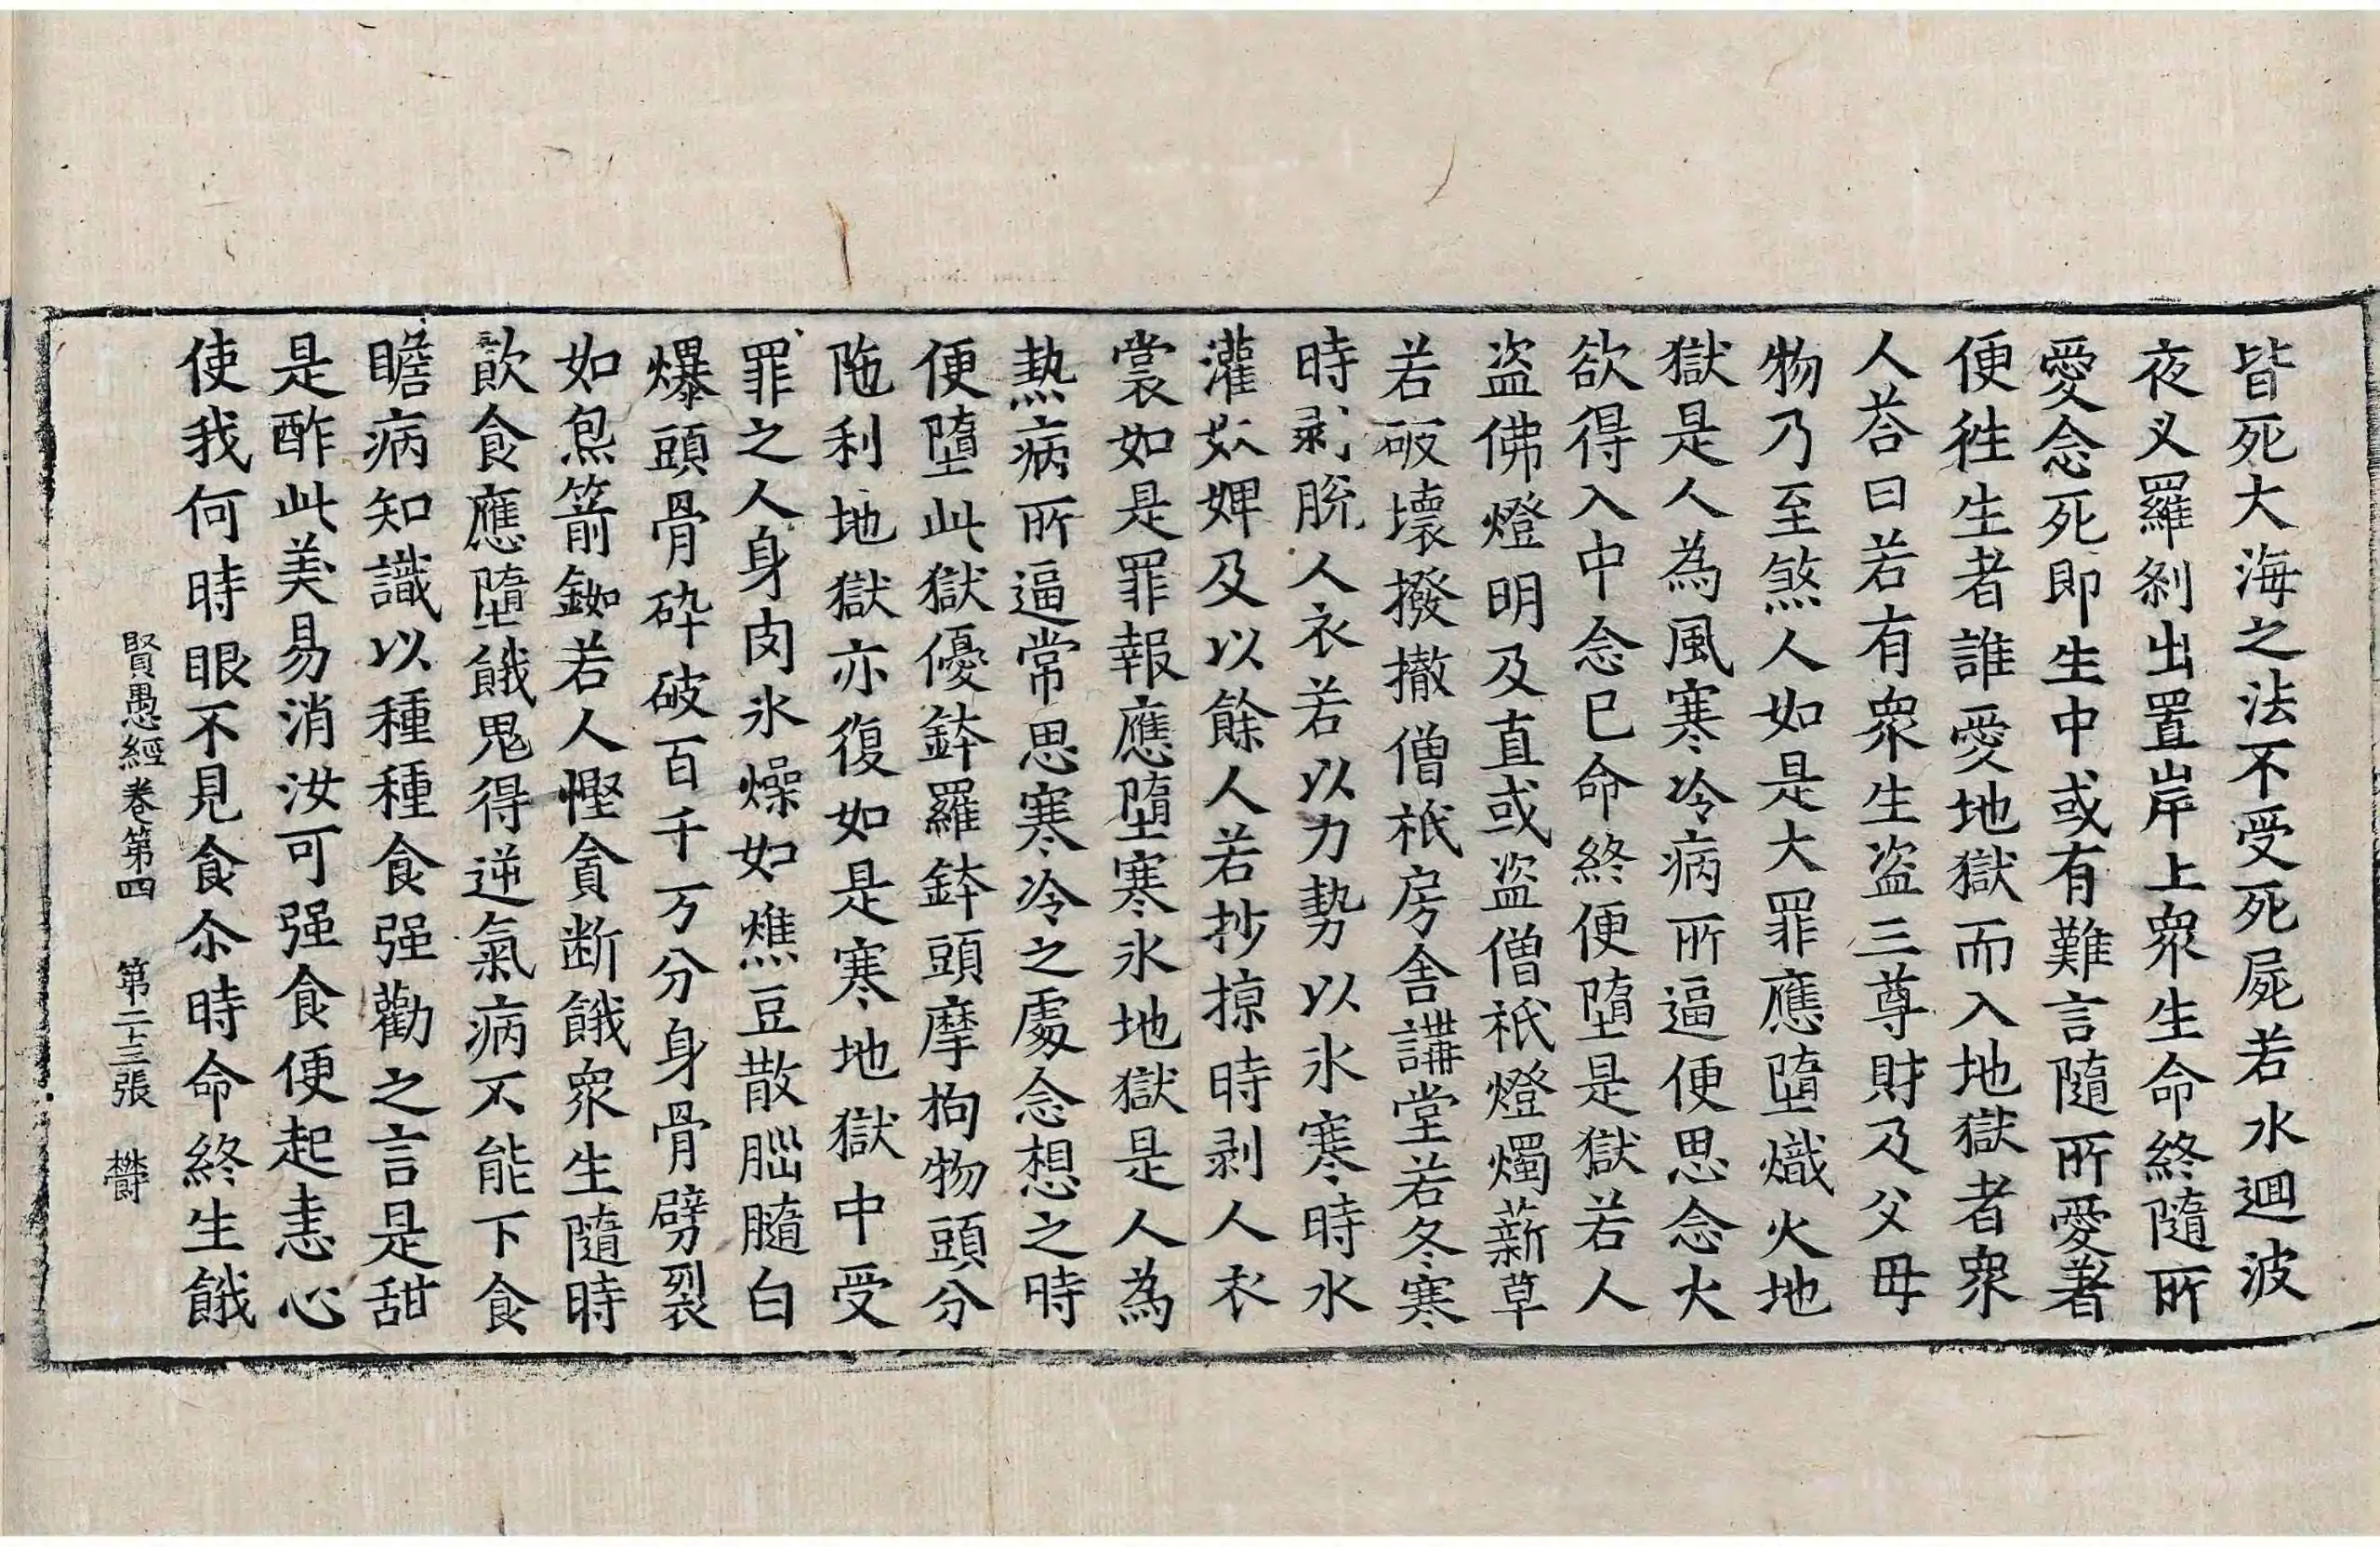 皆死大海之法不受死屍若水迴波
夜叉羅刹出置岸上衆生命終隨所
愛念死即生中或有難言隨所愛著
便徃生者誰愛地獄而入地獄者衆
人荅曰若有衆生盗三尊財及父母
物乃至煞人如是大罪應墮熾火地
獄是人為風寒冷病所逼便思念火
欲得入中念已命終便墮是獄若人
盗佛燈明及直或盗僧祇燈燭薪草
若破壞撥撤僧祇房舍講堂若冬寒
時剥脱人衣若以力勢以氷寒時水
灌奴婢及以餘人若抄掠時剥人衣
裳如是罪報應墮寒氷地獄是人為
熱病所逼常思寒冷之處念想之時
便墮此獄優鉢羅鉢頭摩拘物頭分
陁利地獄亦復如是寒地獄中受
罪之人身肉氷燥如燋豆散腦髓白
爆頭骨碎破百千万分身骨劈裂
如炰箭鈘若人慳貪断餓衆生隨時
飲食應墮餓鬼得逆氣病不能下食
瞻病知識以種種食强勸之言是甜
是酢此美易消汝可强食便起恚心
使我何時眼不見食尒時命終生餓
賢愚經卷第四 第二十三張 欝